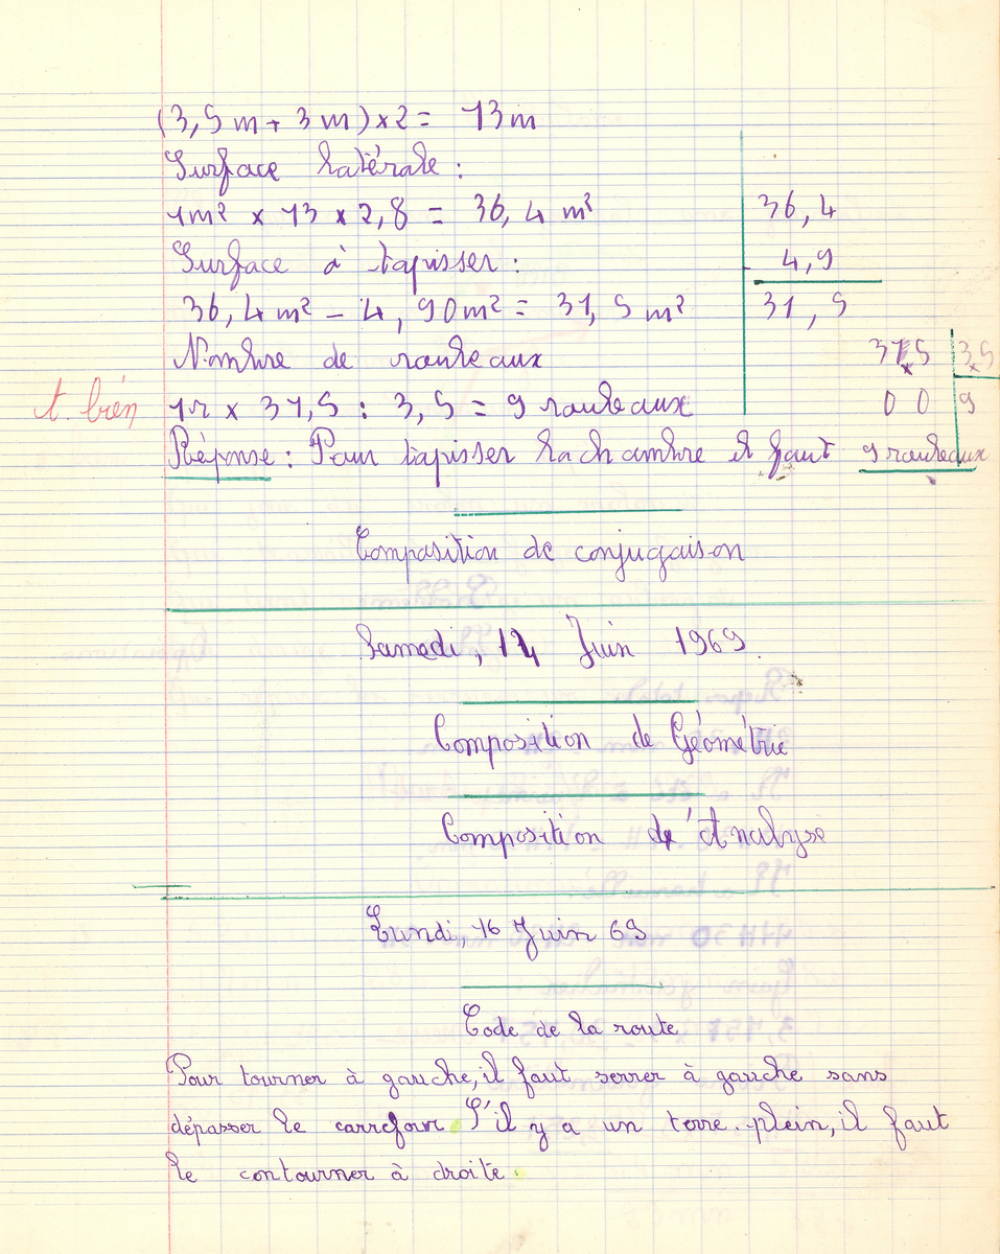 (3,5 m + 3 m) x 2 = 13 m
Surface latérale :
1m² x 13 x 2,8 = 36,4 m²
36,4
Surface à tapisser :
- 4,9
36,4 m² - 4,90m² = 31,5 m²
31,5
Nombre de rouleaux
315 | 35
t. bien
1r x 31,5 : 3,5 = 9 rouleaux
0 0 | 9
Réponse : Pour tapisser la chambre il faut 9 rouleaux
Composition de conjugaison
Samedi, 14 Juin 1969.
Composition de Géométrie
Composition d'Analyse
Lundi, 16 Juin 69
Code de la route
Pour tourner à gauche, il faut serrer à gauche sans
dépasser le carrefour. S'il y a un terre-plein, il faut
le contourner à droite.